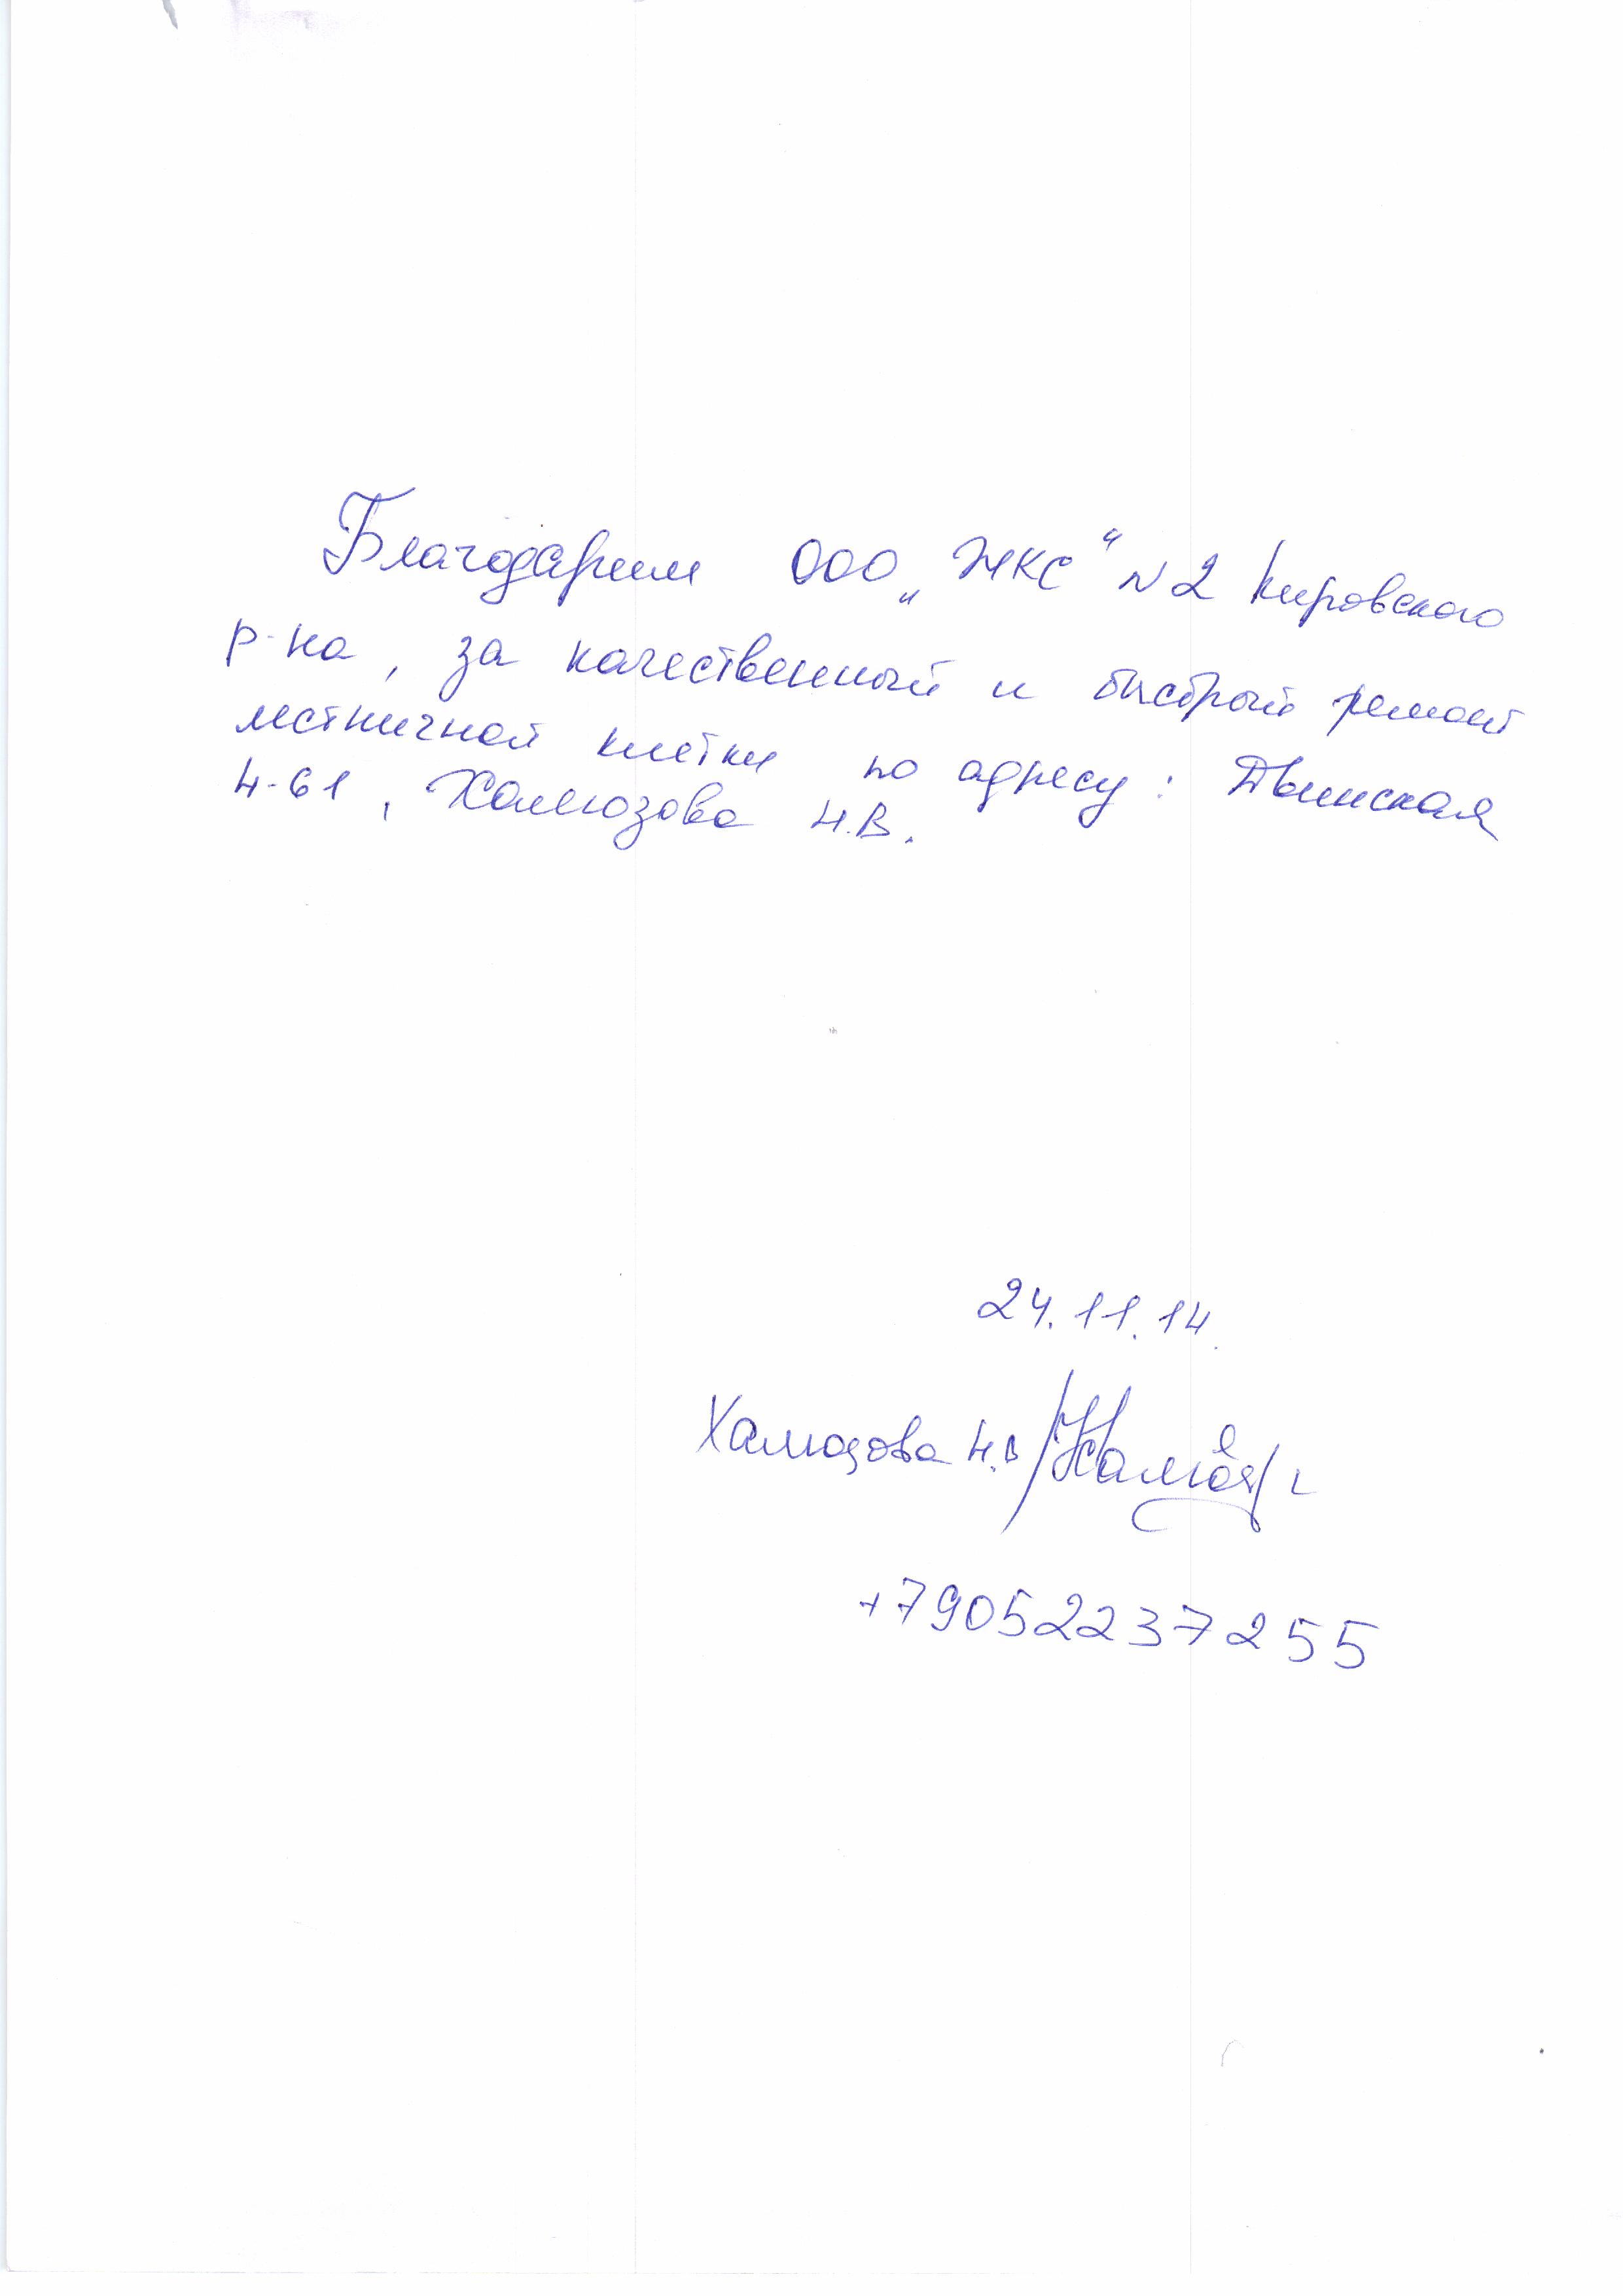 Благодарим ООО „ЖКС“ N2 Кировского
р-на, за качественный и быстрый ремонт
лестничной клетки по адресу: Двинская
4-61, Халюзова Н.В.
24.11.14.
Халюзова Н.В
+79052237255